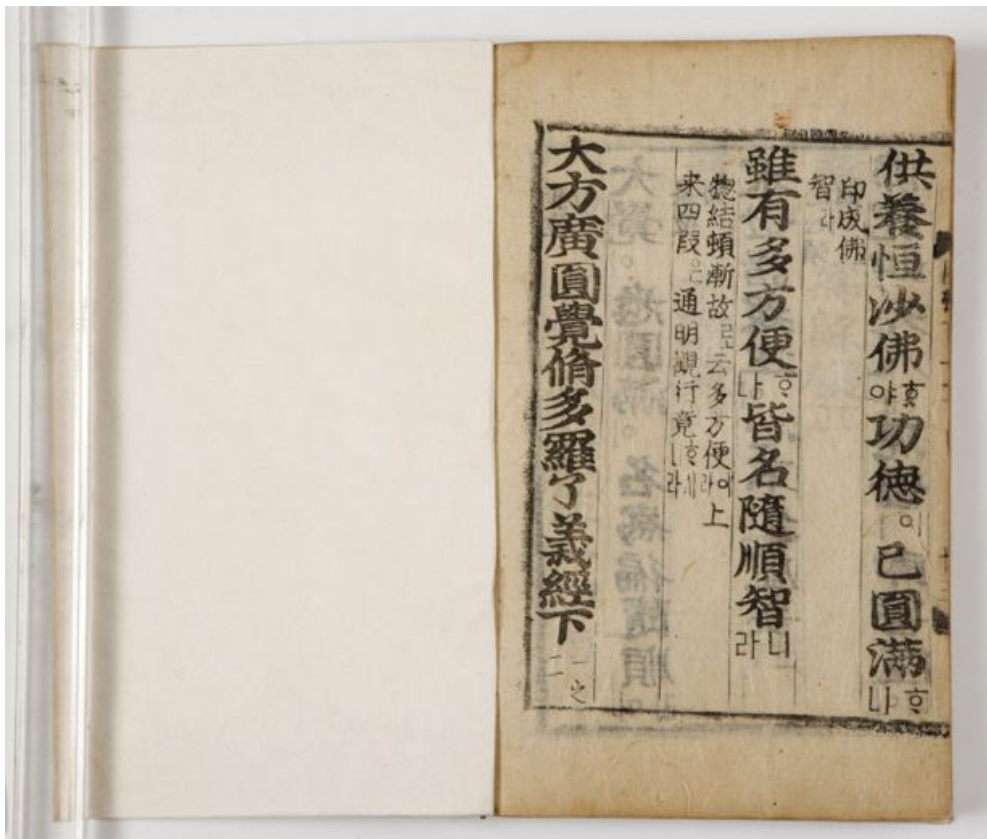 供養恒沙佛ᄒᆞ야功德이已圓滿ᄒᆞ나
印成佛
智라
雖有多方便ᄒᆞ나皆名隨順智니라
惣結頓漸故로云多方便이라上
来四段은通明觀行竟ᄒᆞ시니라
大方廣圓覺脩多羅了義經下一之二